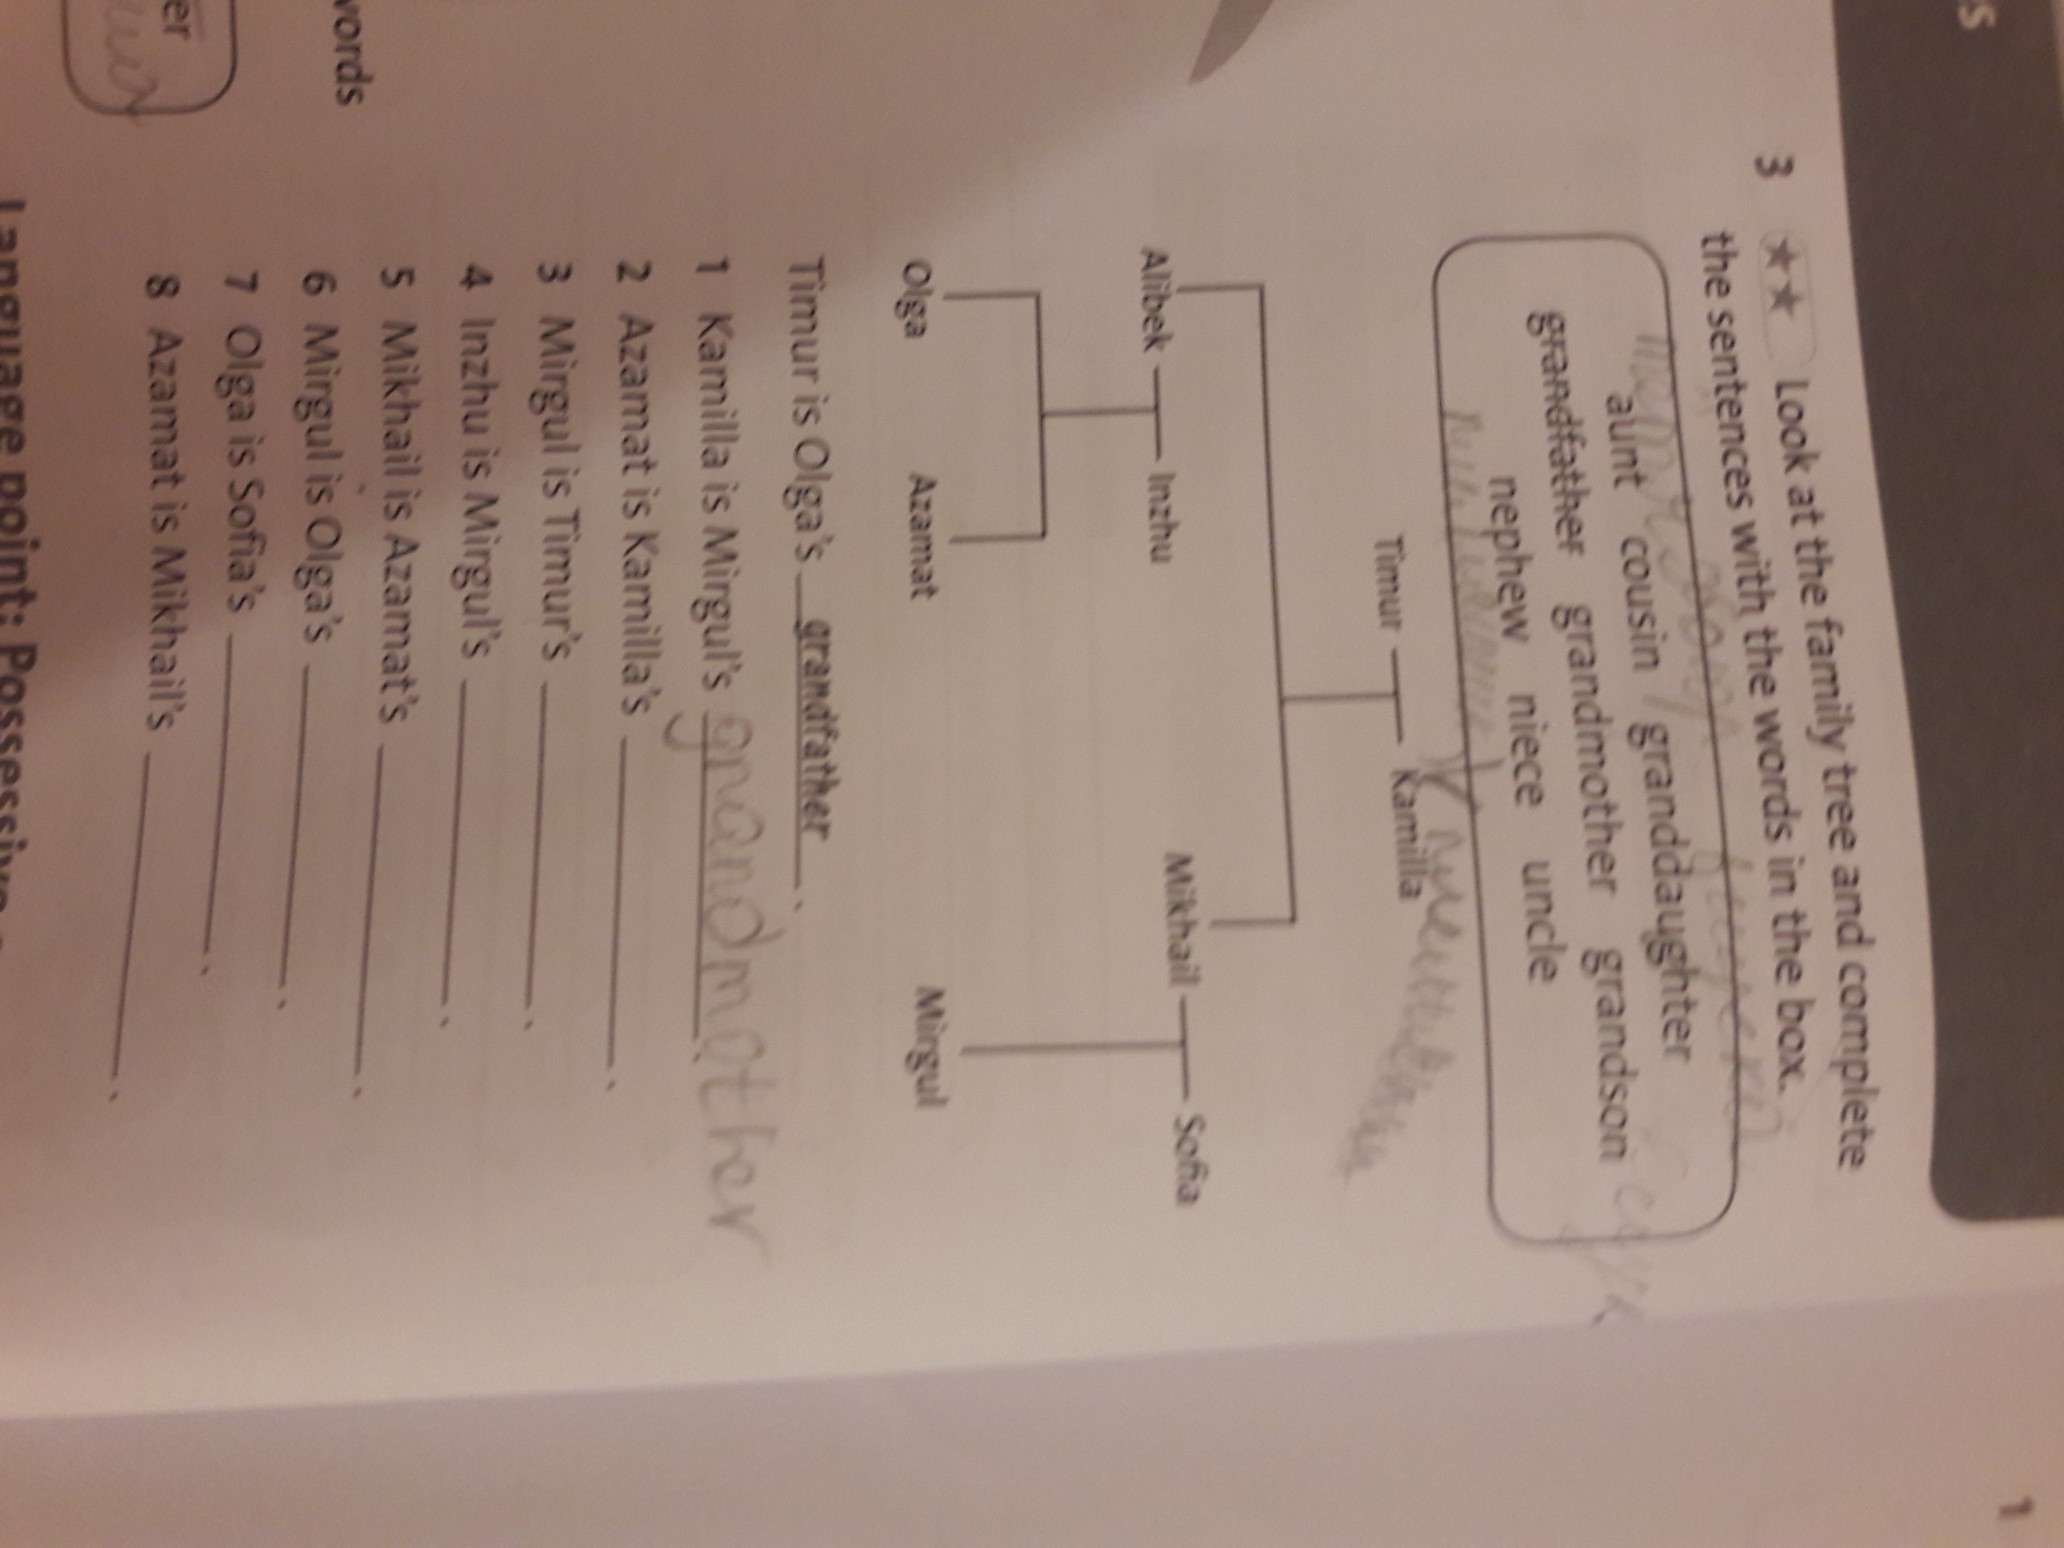 s
1
3 ★★ Look at the family tree and complete
the sentences with the words in the box.
aunt cousin granddaughter
grandfather grandmother grandson
nephew niece uncle
Timur Kamilla
Alibek Inzhu Mikhail Sofia
Olga Azamat Mirgul
Timur is Olga's grandfather.
1 Kamilla is Mirgul's grandmother.
2 Azamat is Kamilla's ______.
3 Mirgul is Timur's ______.
4 Inzhu is Mirgul's ______.
5 Mikhail is Azamat's ______.
6 Mirgul is Olga's ______.
7 Olga is Sofia's ______.
8 Azamat is Mikhail's ______.
words
er
Language point: Possessive